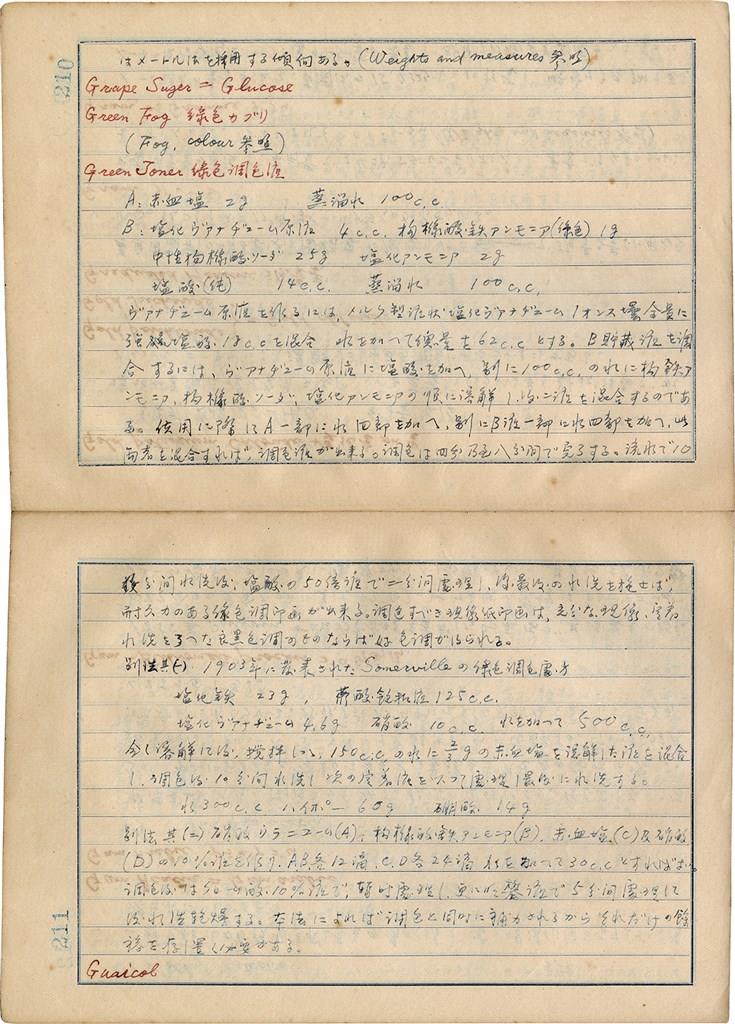 210
はメートル法を採用する傾向ある。(Weights and measures 参照)
Grape Suger = Glucose
Green Fog 緑色カブリ
(Fog, colour 参照)
Green Toner 緑色调色液
A: 赤血塩 2g 蒸溜水 100c.c.
B: 塩化ヴァナヂューム原液 4c.c. 枸櫞酸鉄アンモニア(緑色) 1g
中性枸櫞酸ソーダ 25g 塩化アンモニア 2g
塩酸(純) 14c.c. 蒸溜水 100c.c.
ヴァナヂューム原液を作るには、メルク製泥状塩化ヴァナヂューム1オンス壜全量に
強塩酸 18c.c.を混合 水を加へて総量を62c.c.とする。B貯蔵液を調
合するには、ヴァナヂューム原液に塩酸を加へ、別に100c.c.の水に枸鉄ア
ンモニア、枸櫞酸ソーダ、塩化アンモニアの順に溶解し、後二液を混合するのであ
る。使用に際してA一部に水四部を加へ、別にB液一部に水四部を加へ、此
両者を混合すれば、調色液が出来る。調色は四分乃至八分間で完了する。流水で10
分間水洗後、塩酸の50倍液で二分間処理し、後最後の水洗を施せば、
耐久力のある緑色調印画が出来る。調色すべき現像紙印画は、充分な現像、定着
水洗を了つた良黒色調のものならば好色調が得られる。
別法其(一) 1903年に発表されたSomervilleの緑色調色処方
塩化鉄 23g, 蓚酸飽和液 125c.c.
塩化ヴァナヂューム 4.6g 硝酸 10c.c. 水を加へて 500c.c.
全く溶解して後、攪拌しつゝ、150c.c.の水に 2/3gの赤血塩を溶解した液を混合
し、調色後10分間水洗し次の定着液を以つて処理し最後に水洗する。
水300c.c. ハイポー 60g 硼酸 14g
別法其(二) 硝酸ウラニューム(A), 枸櫞酸鉄アンモニア(B), 赤血塩(C)及硝酸
(D)の10%液を作り、A.B各12滴、C.D各24滴 水を加へて30c.c.とすればよい。
調色後は 酸10%液で、暫時処理し、更に明礬液で5分間処理して
後水洗乾燥する。本法によれば調色と同時に補力されるからそれだけの餘
裕を存し置く必要がある。
Guaicol
211